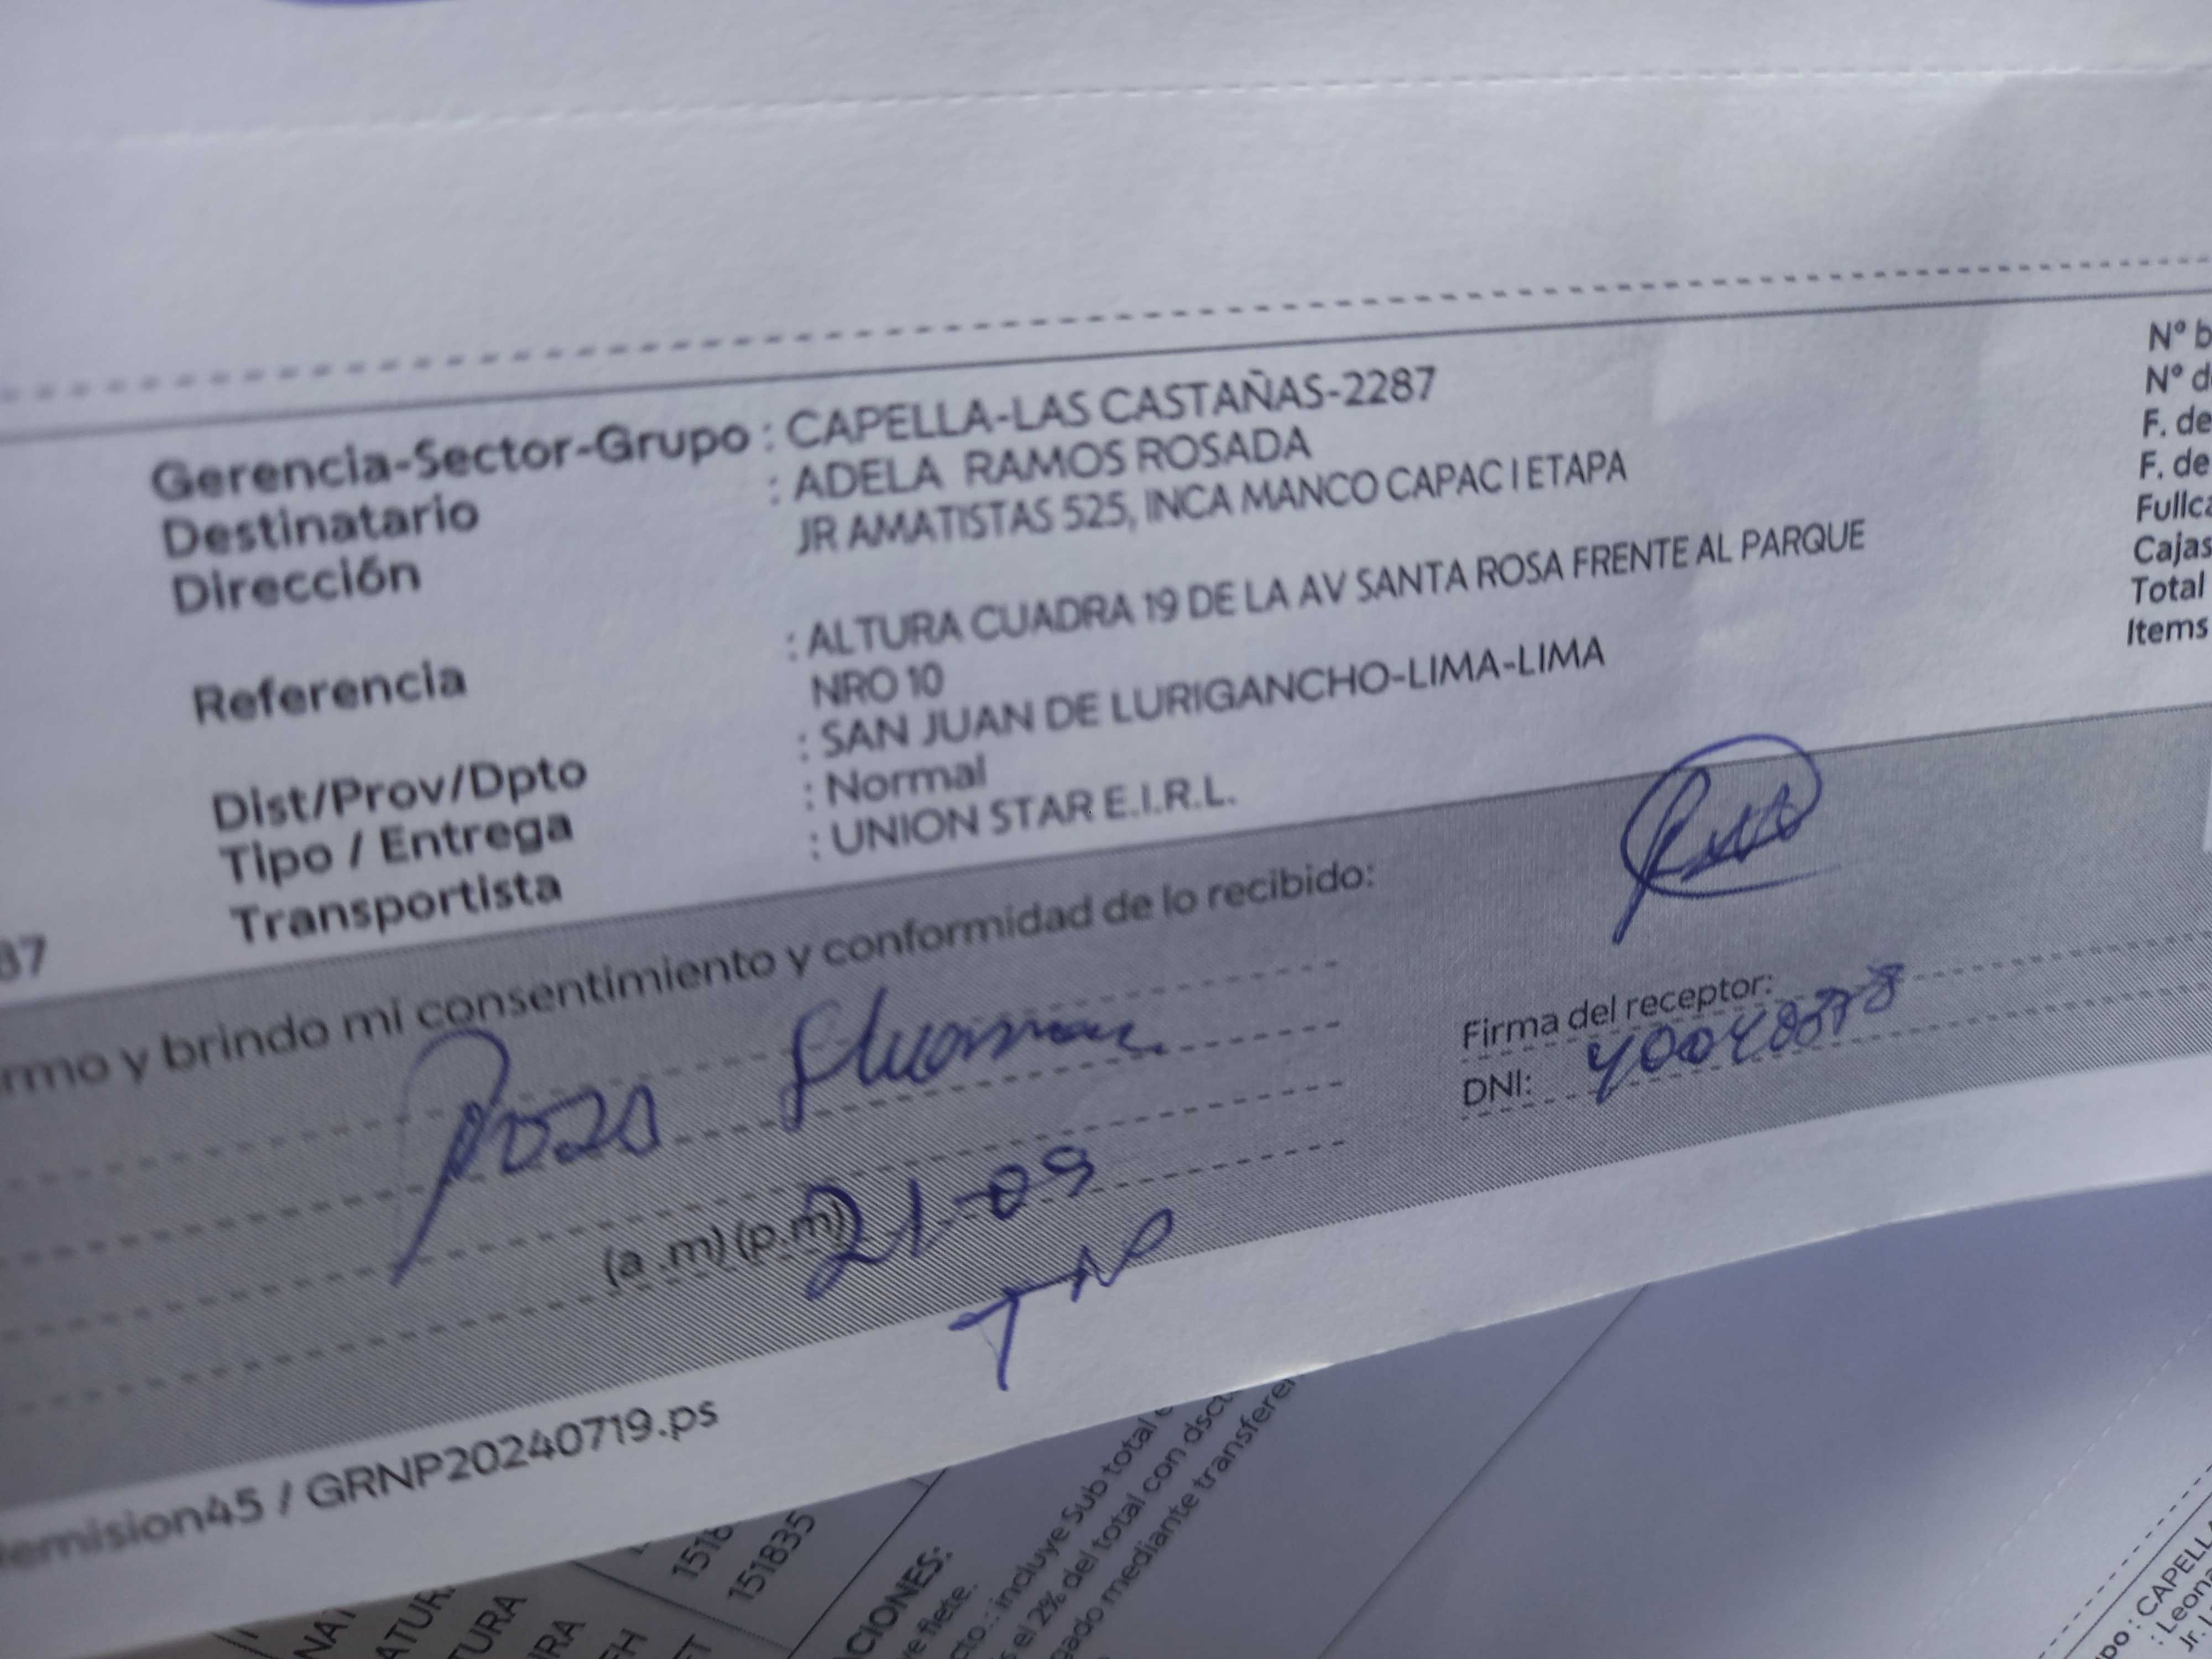 Gerencia-Sector-Grupo : CAPELLA-LAS CASTAÑAS-2287
Destinatario : ADELA RAMOS ROSADA
Dirección JR AMATISTAS 525, INCA MANCO CAPAC I ETAPA
Referencia : ALTURA CUADRA 19 DE LA AV SANTA ROSA FRENTE AL PARQUE
NRO 10
Dist/Prov/Dpto : SAN JUAN DE LURIGANCHO-LIMA-LIMA
Tipo / Entrega : Normal
Transportista : UNION STAR E.I.R.L.
N° b
N° d
F. de
F. de
Fullca
Cajas
Total
Items
37
rmo y brindo mi consentimiento y conformidad de lo recibido:
Firma del receptor:
DNI:
(a .m) (p.m) 21-09
emision45 / GRNP20240719.ps
151835
CIONES:
ve flete.
cto.: incluye Sub total e
s el 2% del total con dsct
gado mediante transferen
ATUR
TURA
URA
FH
FT
po : CAPELLA
: Leona
Jr.